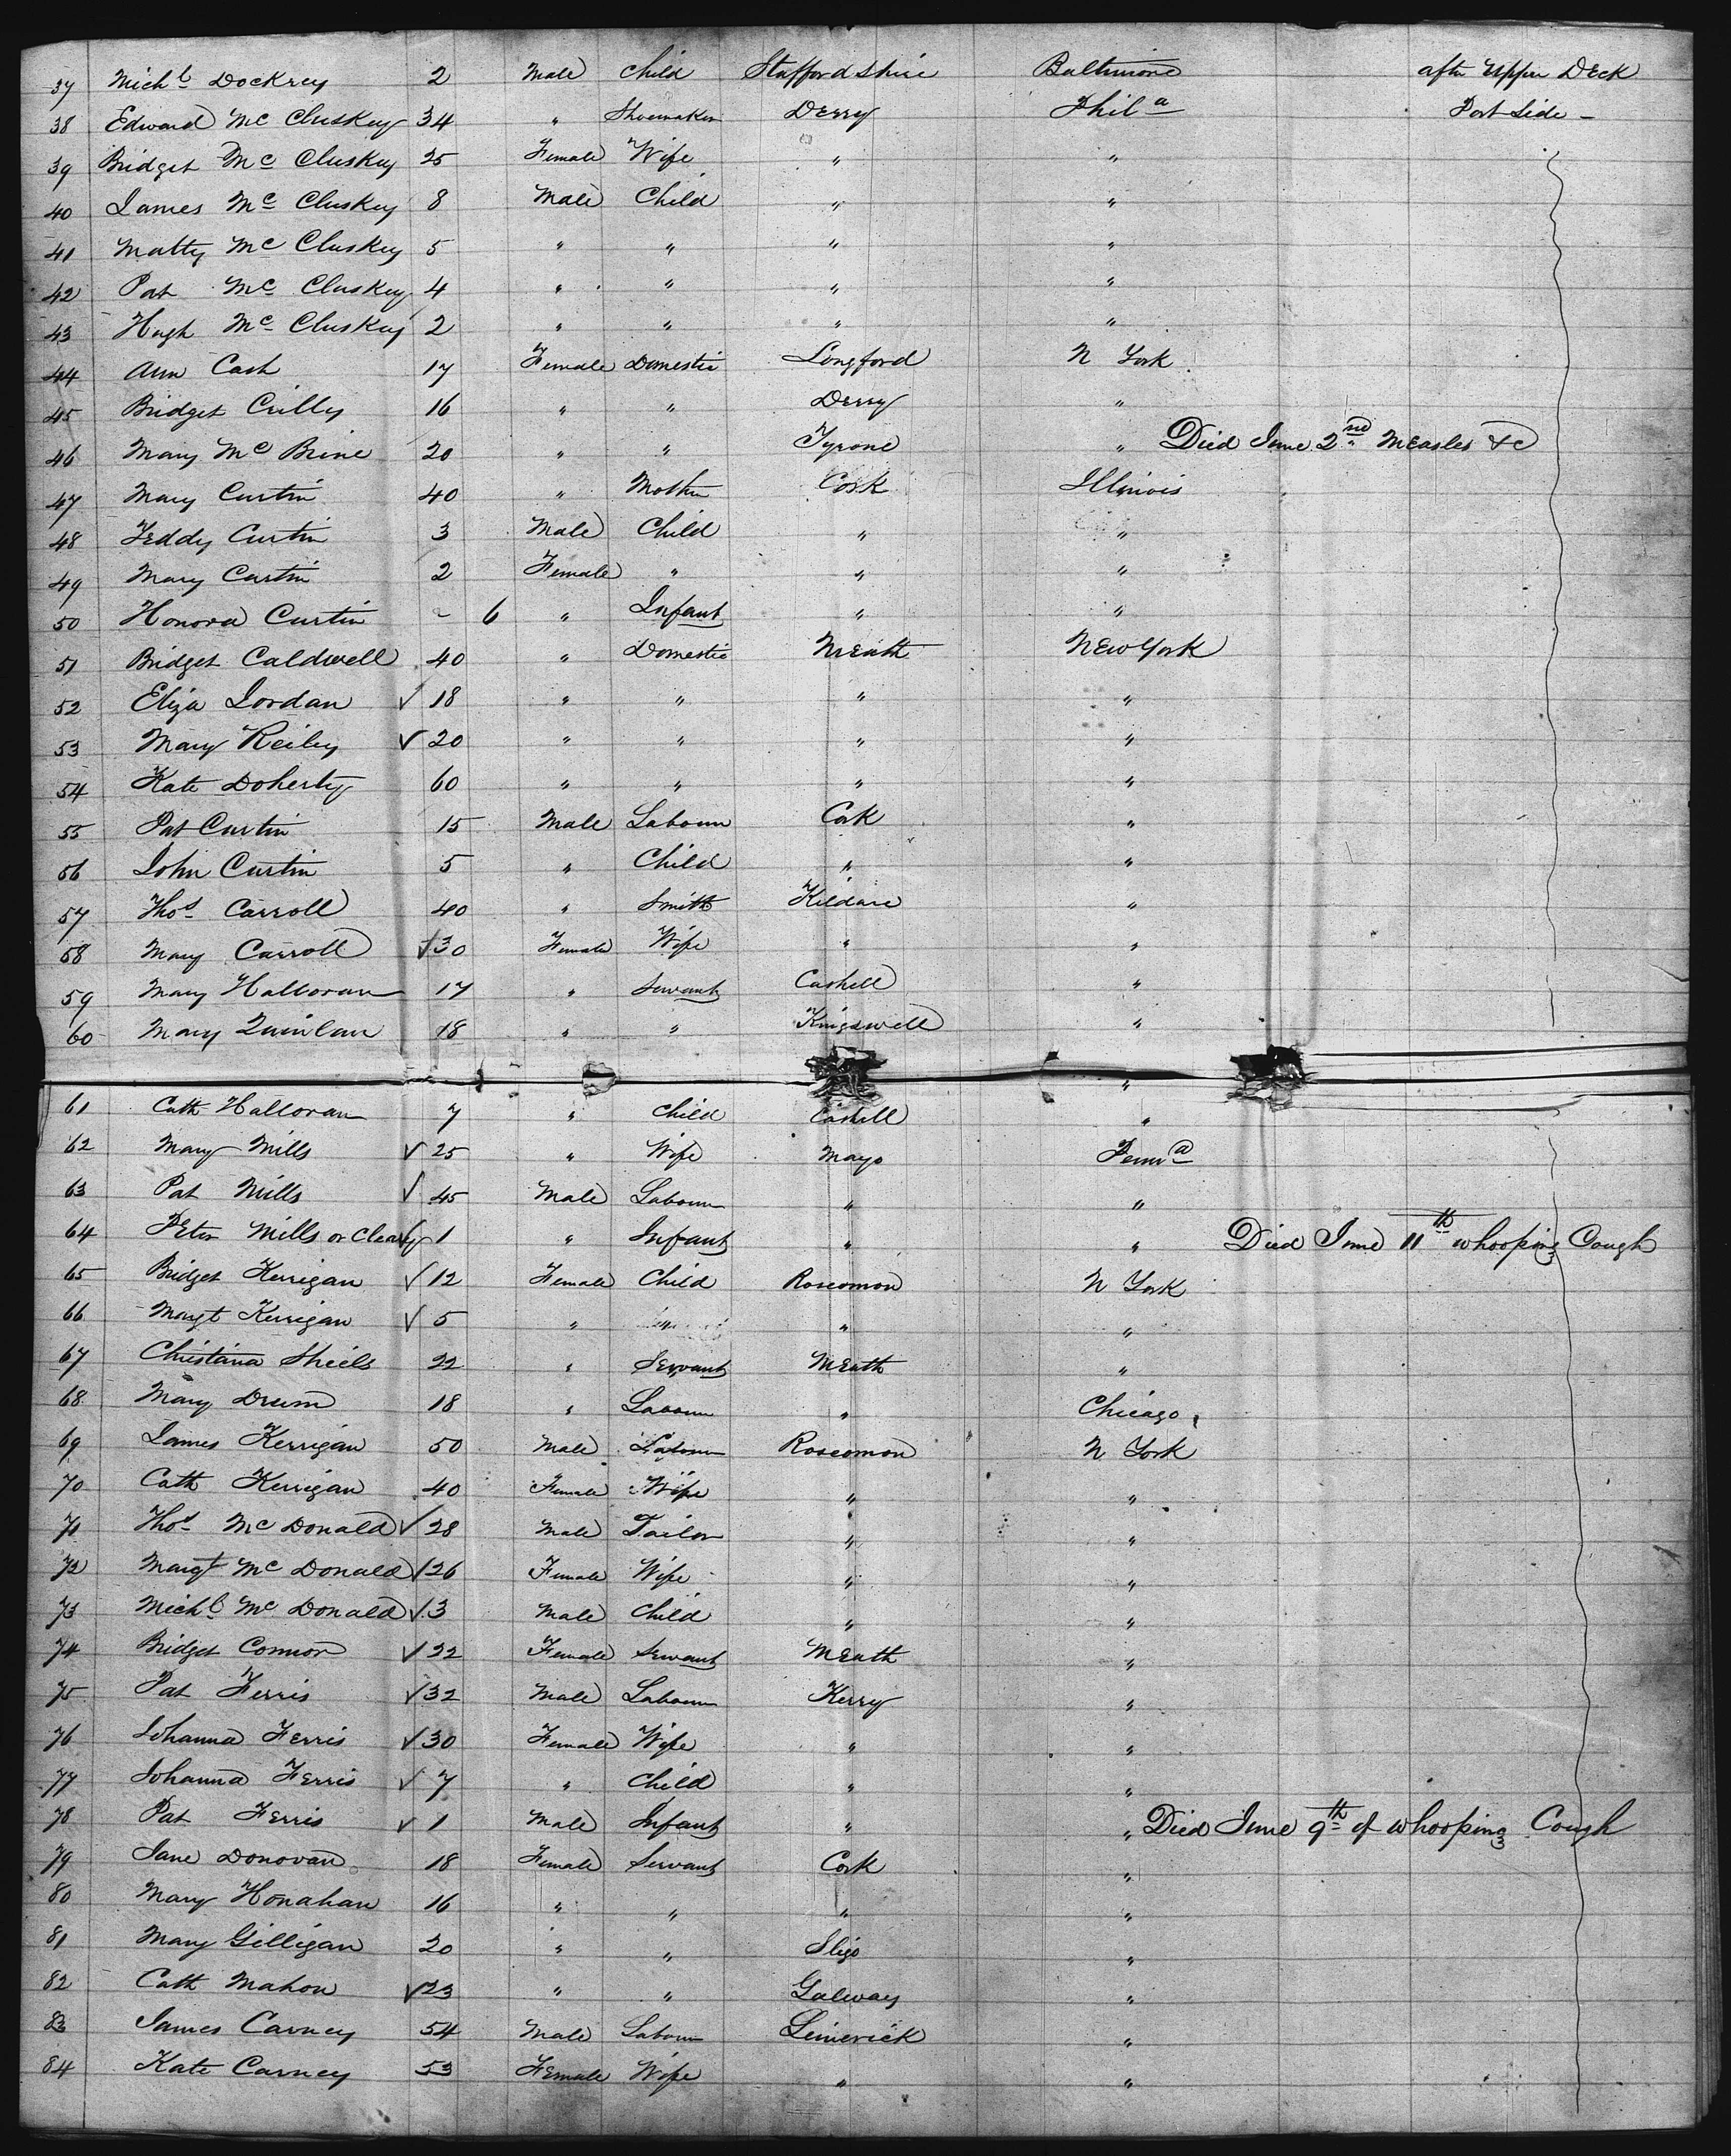 37 Mich^l Dockrey 2 Male Child Staffordshire Baltimore after Upper Deck
38 Edward Mc Cluskey 34 " Shoemaker Derry Phil^a Port Side -
39 Bridget Mc Cluskey 25 Female Wife " "
40 James Mc Cluskey 8 Male Child " "
41 Matty Mc Cluskey 5 " " " "
42 Pat Mc Cluskey 4 " " " "
43 Hugh Mc Cluskey 2 " " " "
44 Ann Cash 17 Female Domestic Longford N York
45 Bridget Crilly 16 " " Derry "
46 Mary Mc Brine 20 " " Tyrone " Died June 2nd Measles &c
47 Mary Curtin 40 " Mother Cork Illinois
48 Teddy Curtin 3 Male Child " "
49 Mary Curtin 2 Female " " "
50 Honora Curtin - 6 " Infant " "
51 Bridget Caldwell 40 " Domestic Meath New York
52 Eliza Jordan ✓ 18 " " " "
53 Mary Reiley ✓ 20 " " " "
54 Kate Doherty 60 " " " "
55 Pat Curtin 15 Male Labourer Cork "
56 John Curtin 5 " Child " "
57 Thos Carroll 40 " Smith Kildare "
58 Mary Carroll ✓ 30 Female Wife " "
59 Mary Halloran 17 " Servant Cashell "
60 Mary Quinlan 18 " " Kingswell "
"
61 Cath Halloran 7 " Child Cashell "
62 Mary Mills ✓ 25 " Wife Mayo Penn^a
63 Pat Mills ✓ 45 Male Labour " "
64 Peter Mills or Cleary ✓ 1 " Infant " " Died June 11th whooping Cough
65 Bridget Kerrigan ✓ 12 Female Child Roscomon N York
66 Margt Kerrigan ✓ 5 " " " "
67 Christana Sheils 22 " Servant Meath "
68 Mary Drum 18 " Labour " Chicago
69 James Kerrigan 50 Male Labour Roscomon N York
70 Cath Kerrigan 40 Female Wife " "
71 Thos Mc Donald ✓ 28 Male Tailor " "
72 Margt Mc Donald ✓ 26 Female Wife " "
73 Mich^l Mc Donald ✓ 3 Male Child " "
74 Bridget Connor ✓ 22 Female Servant Meath "
75 Pat Ferris ✓ 32 Male Labour Kerry "
76 Johanna Ferris ✓ 30 Female Wife " "
77 Johanna Ferris ✓ 7 " Child " "
78 Pat Ferris ✓ 1 Male Infant " " Died June 9th of whooping Cough
79 Jane Donovan 18 Female Servant Cork "
80 Mary Honahan 16 " " " "
81 Mary Gilligan 20 " " Sligo "
82 Cath Mahon ✓ 23 " " Galway "
83 James Carney 54 Male Labour Limerick "
84 Kate Carney 53 Female Wife " "